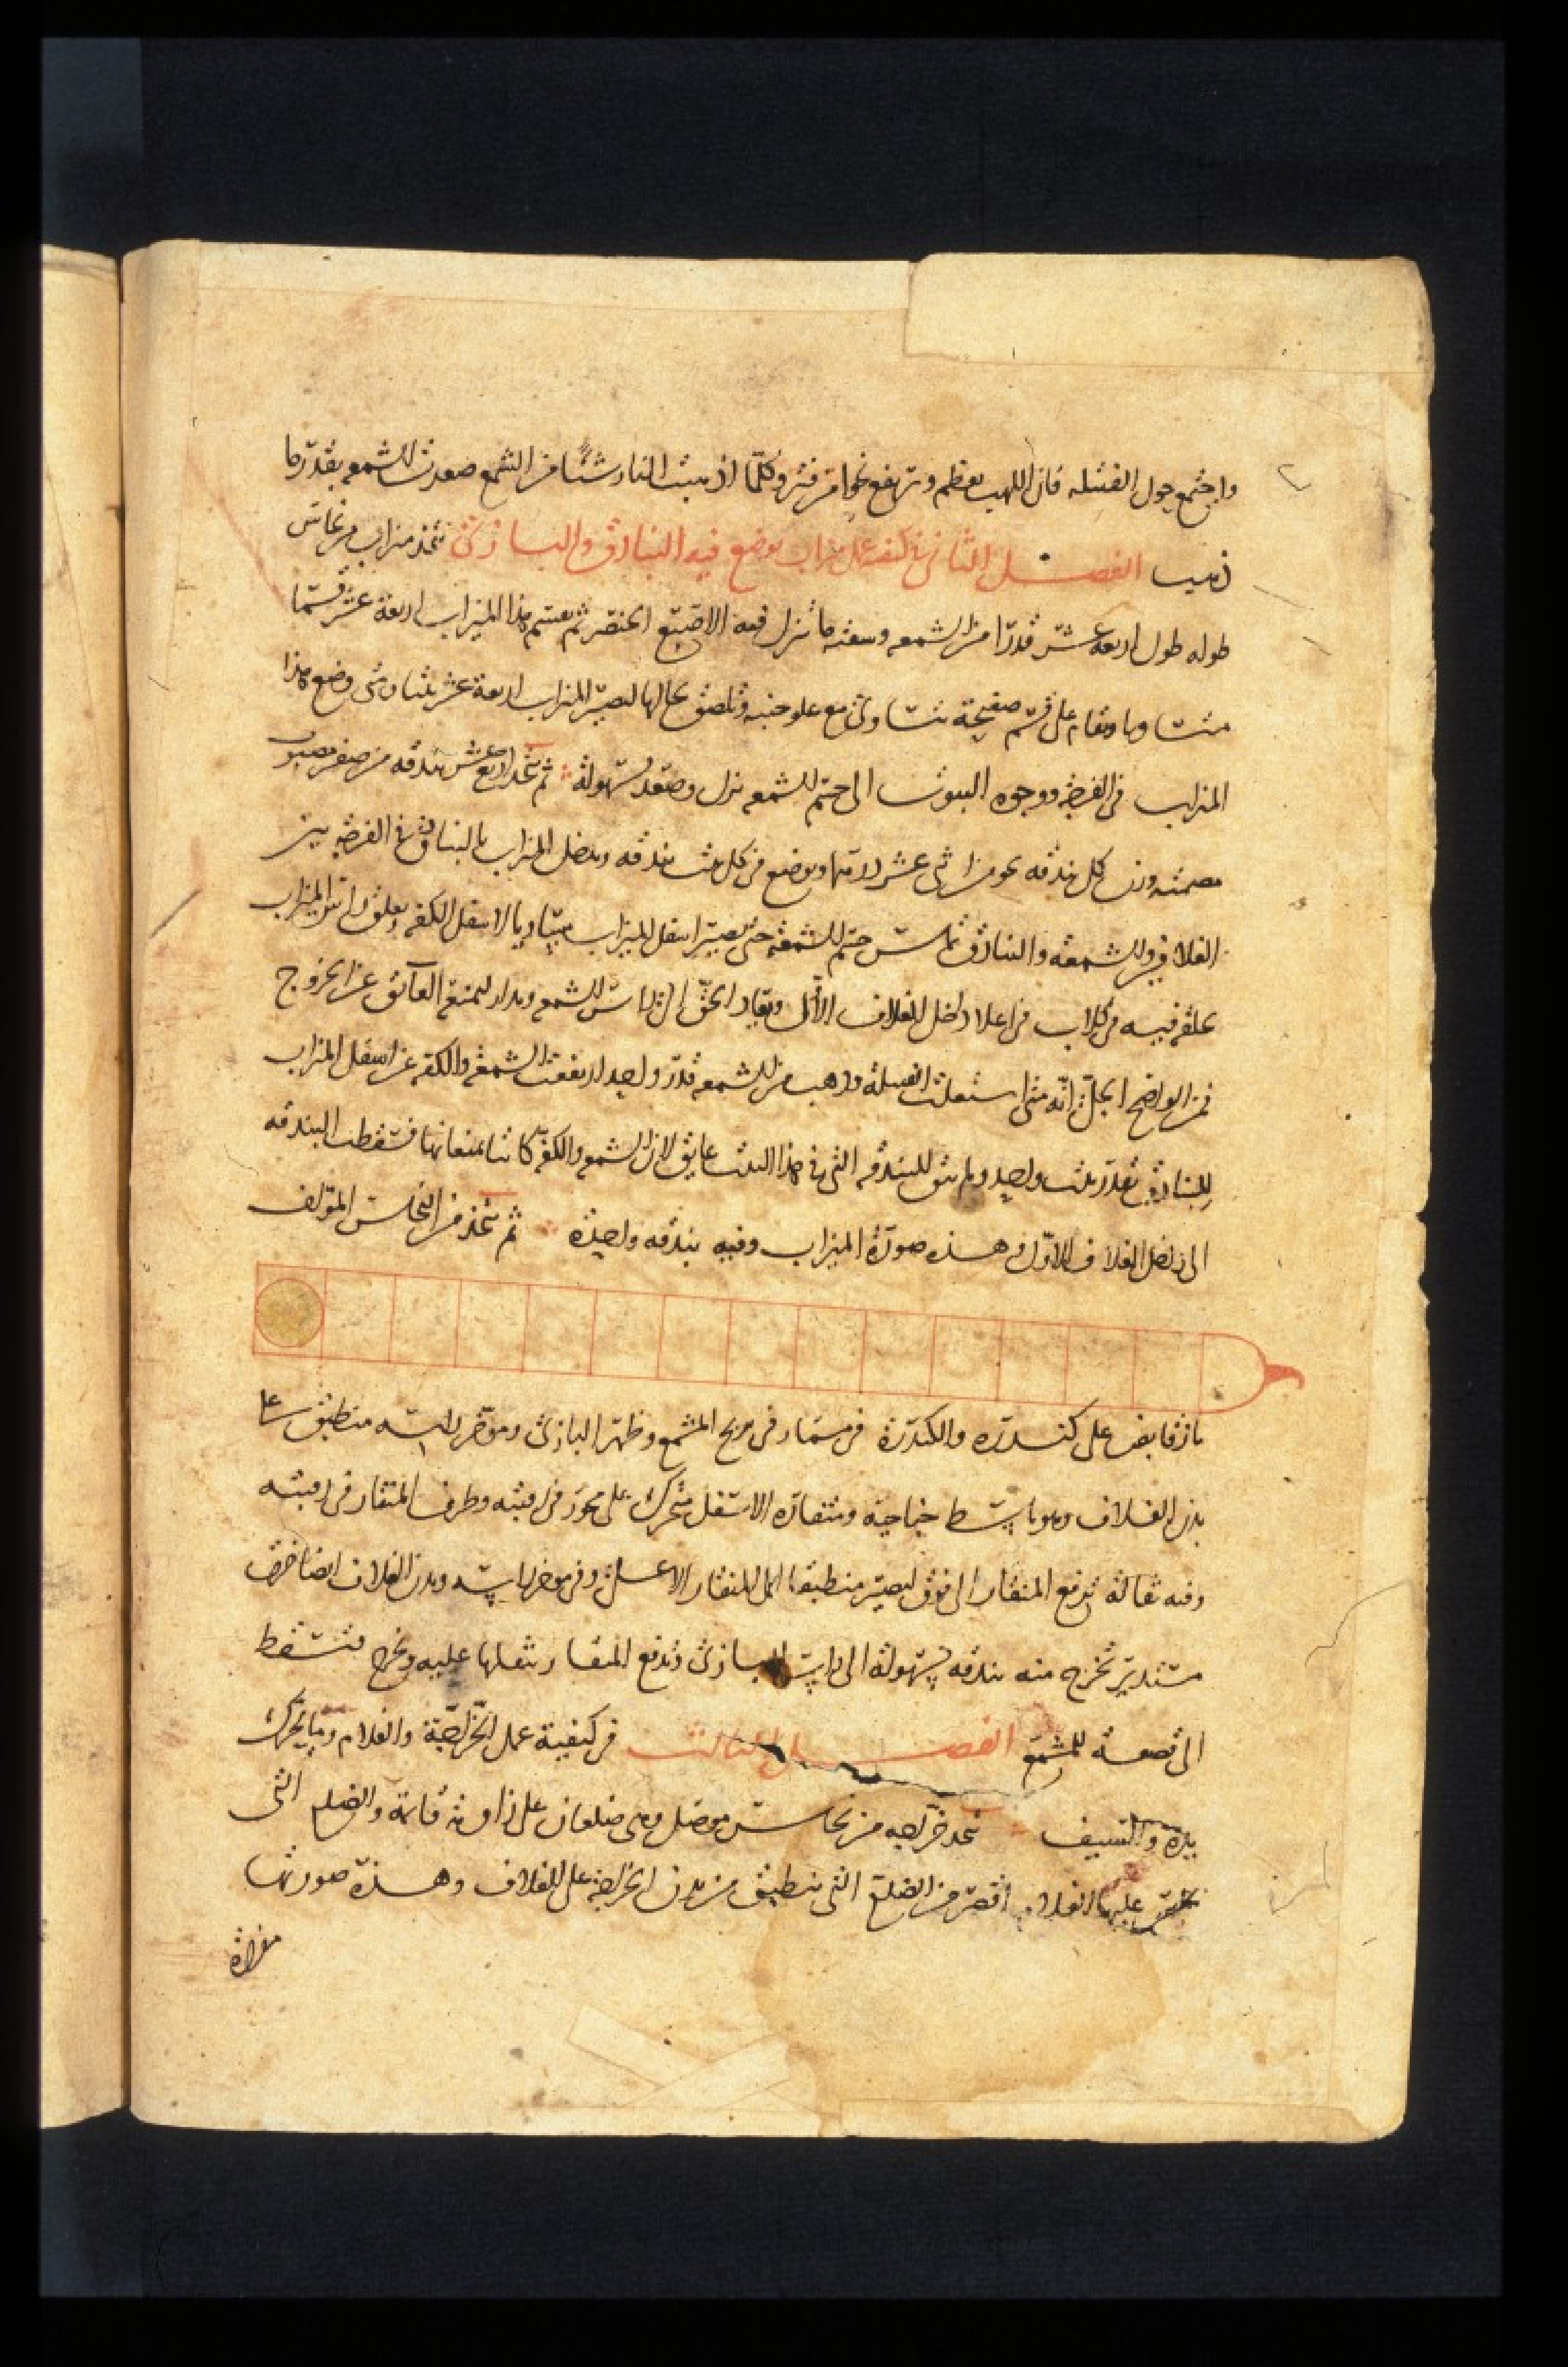 واجتمع حول الفتيله فان اللهب يعظم وترتفع نحوا من فتر وكلما اذهبت النار شيئا من الشمع صعدت الشمعه بقدر ما
ذهب الفصل الثاني في كيفية عمل ميزاب يوضع فيه البنادق والبازي يتخذ ميزاب من نحاس
طوله طول اربعه عشر قدرا من الشمعه وسعته ما ينزل فيه الاصبع الخنصر ثم يقسم هذا الميزاب اربعة عشر قسما
متساويا ويقام على كل قسم صفيحة تتساوى مع علو جنبيه وتلصق بحالها ليصير الميزاب اربعة عشر بيتا ومتى وضع هذا
الميزاب في الفرضه ووجوه البيوت الى جسم الشمعه نزل وصعد بسهولة ثم يتخذ اربع عشر بندقه من صفر مصبوب
مصمته وزن كل بندقه نحو من اثنى عشر درهما ويوضع في كل بيت بندقه ويدخل الميزاب بالبنادق في الفرضه بين
الغلافين والشمعه والبنادق تماس جسم الشمعه حتى يصير اسفل الميزاب مساويا لاسفل الكفه ويعلق راس الميزاب
بحلقه فيه في كلاب في اعلا داخل الغلاف الاول ويعاد الحق الى راس الشمعه ويدار ليمنع العائق عن الخروج
فمن الواضح الجلي انه متى اشتعلت الفتيلة وذهب من الشمعه قدر واحد ارتفعت الشمعه والكفه عن اسفل الميزاب
بالبنادق بقدر بيت واحد ولم يبق للبندقه التي في هذا البيت عايق لان الشمعه والكفه كانتا تمنعانها فتسقط البندقه
الى داخل الغلاف الاول وهذه صورة الميزاب وفيه بندقه واحدة ثم يتخذ من النحاس المؤلف
باز قابض على كندره والكندرة في مسمار في مربح المشمع وظهر البازي وموخر راسه منطبق على
بدن الغلاف وهو باسط جناحيه ومنقاره الاسفل متحرك على محور في راسه وطرف المنقار في رقبته
وفيه ثقاله ترفع المنقار الى فوق ليصير منطبقا الى المنقار الاعلى وفي موخر راسه وبدن الغلاف ايضا خرق
مستدير تخرج منه بندقه بسهولة الى راس البازي وتدفع المنقار بثقلها عليه وتخرج فتسقط
الى قصعة المشمع الفصل الثالث في كيفية عمل الخراجة والغلام وما يحرك
يده والسيف يتخذ خراجه من نحاس موصل وهي ضلعان على زاوية قائمة والضلع التي
عليها الغلام اقصر من الضلع التي ينطبق من بدن الخراجة على الغلاف وهذه صورتها